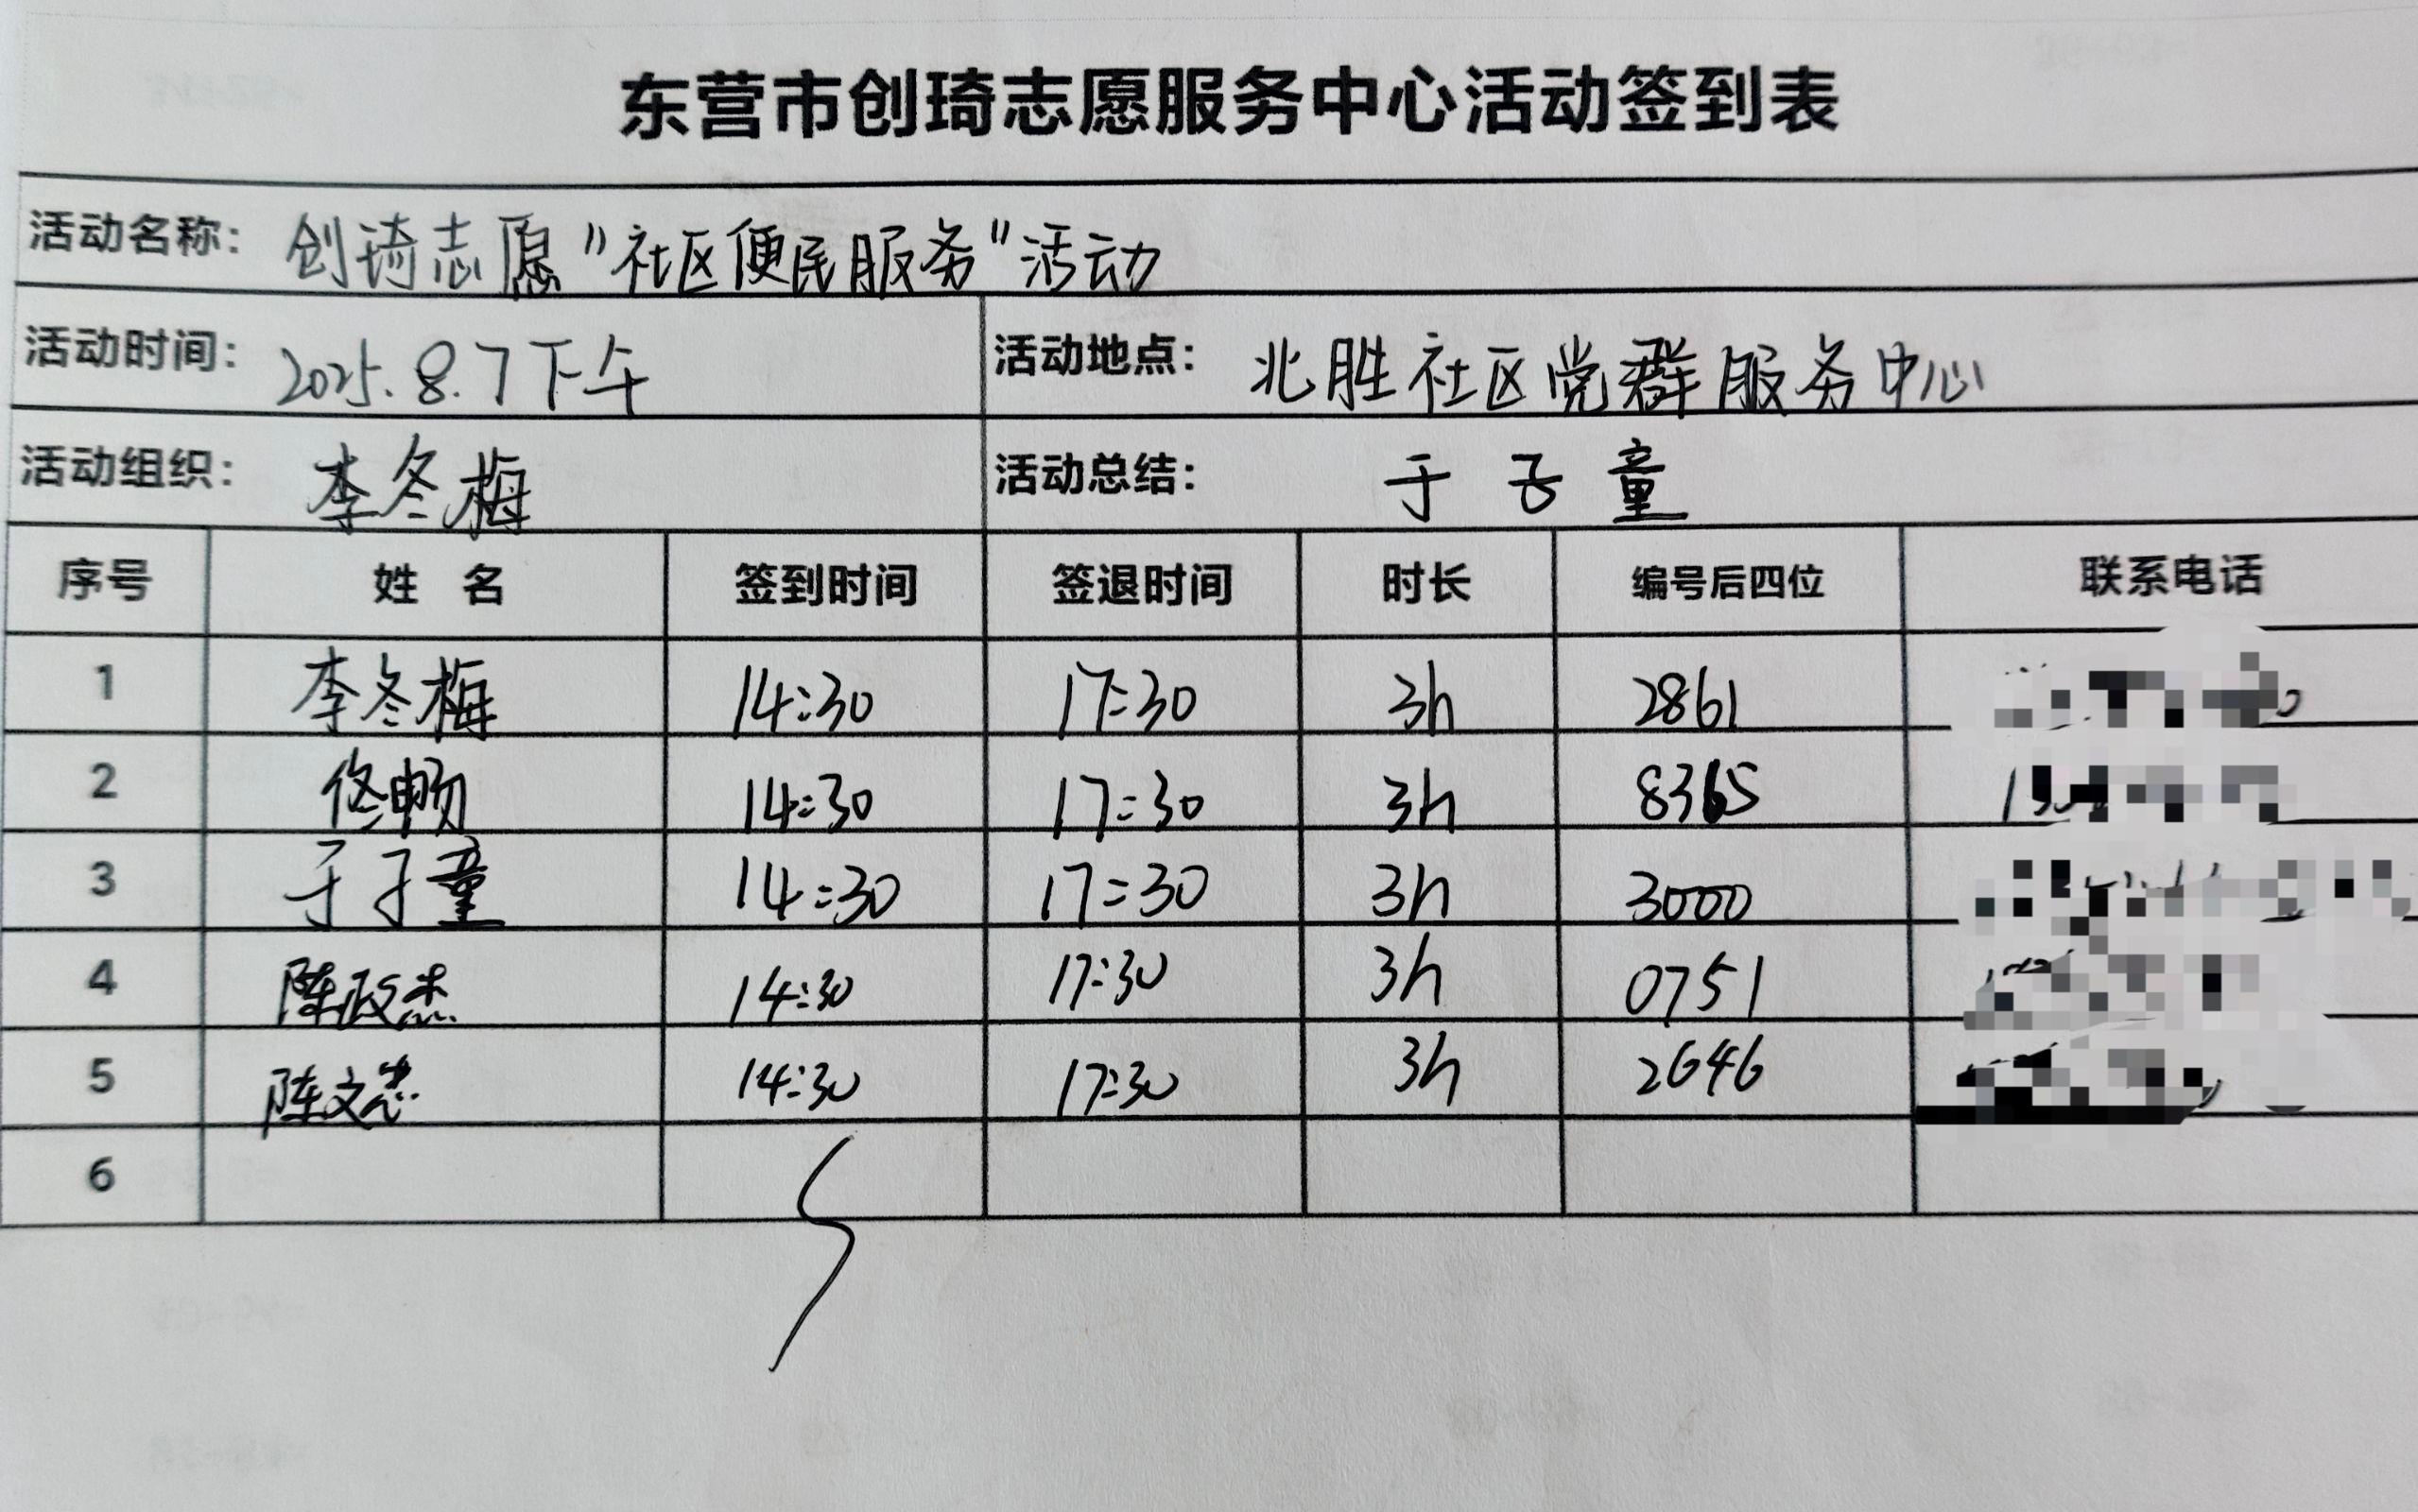 东营市创琦志愿服务中心活动签到表
活动名称: 创琦志愿"社区便民服务"活动
活动时间: 2025.8.7下午 活动地点: 北胜社区党群服务中心
活动组织: 李冬梅 活动总结: 于子童
序号 姓 名 签到时间 签退时间 时长 编号后四位 联系电话
1 李冬梅 14:30 17:30 3h 2861
2 佟畅 14:30 17:30 3h 8365
3 于子童 14:30 17:30 3h 3000
4 陈政杰 14:30 17:30 3h 0751
5 陈文志 14:30 17:30 3h 2646
6